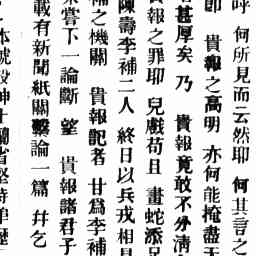 呼 何所見而云然耶 何其言之
即 貴報之高明 亦何能掩盡天
甚厚矣 乃 貴報竟敢不分清
報之罪耶 兒戲苟且 畫蛇添足
陳壽李補二人 終日以兵戎相見
補之機關 貴報記者 甘爲李補
嘗下一論斷 望 貴報諸君子
載有新聞紙關繫論一篇 幷乞